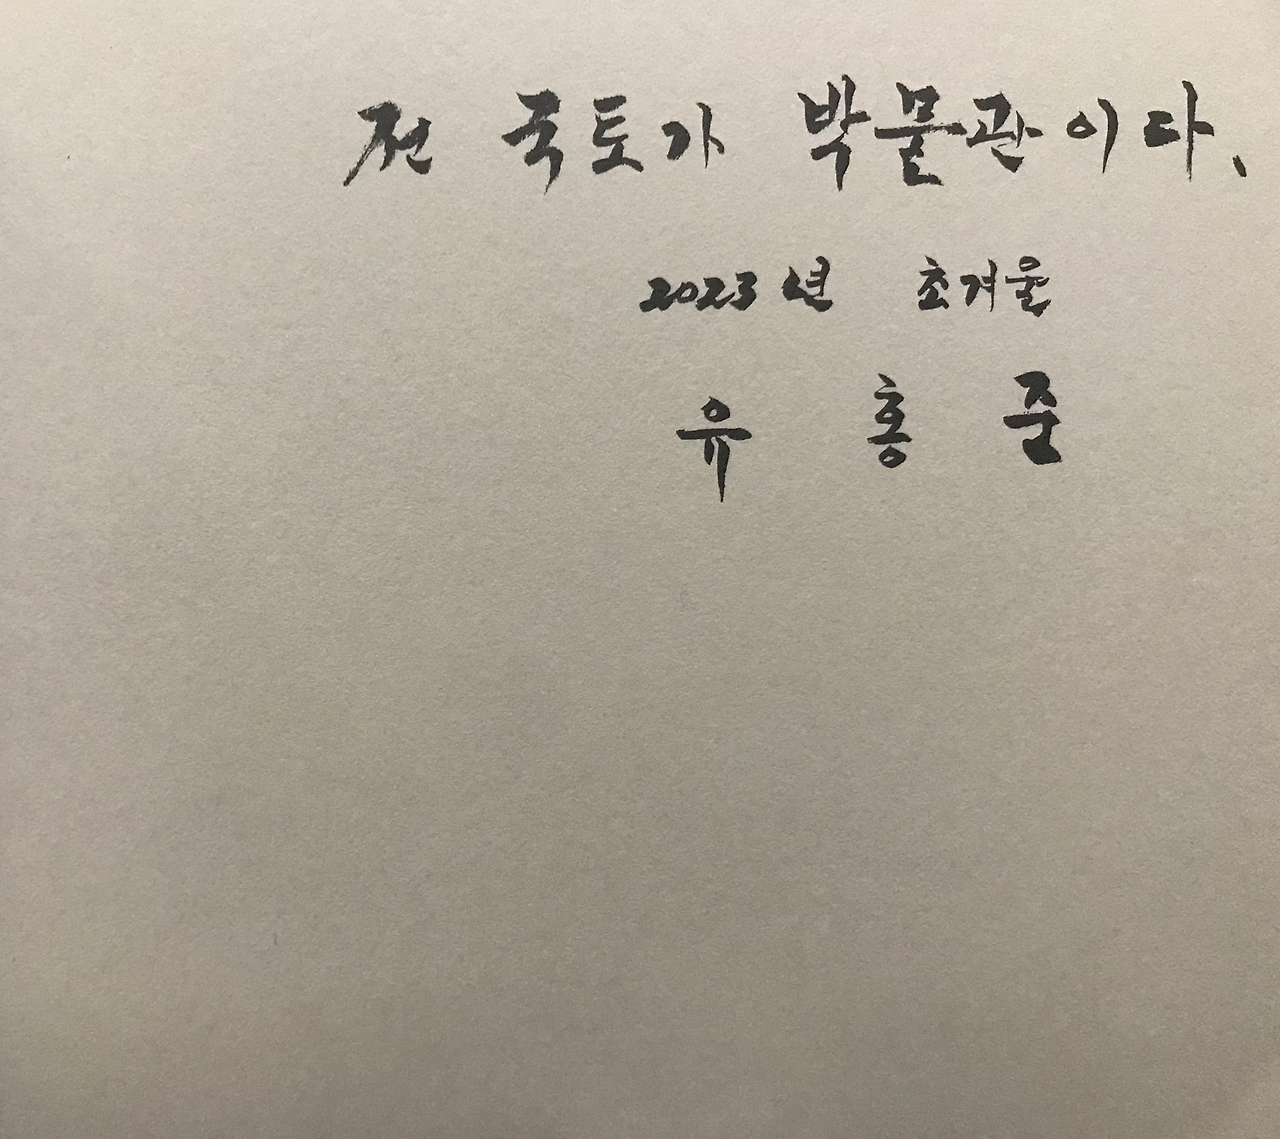 전 국토가 박물관이다.
2023년 초겨울
유홍준